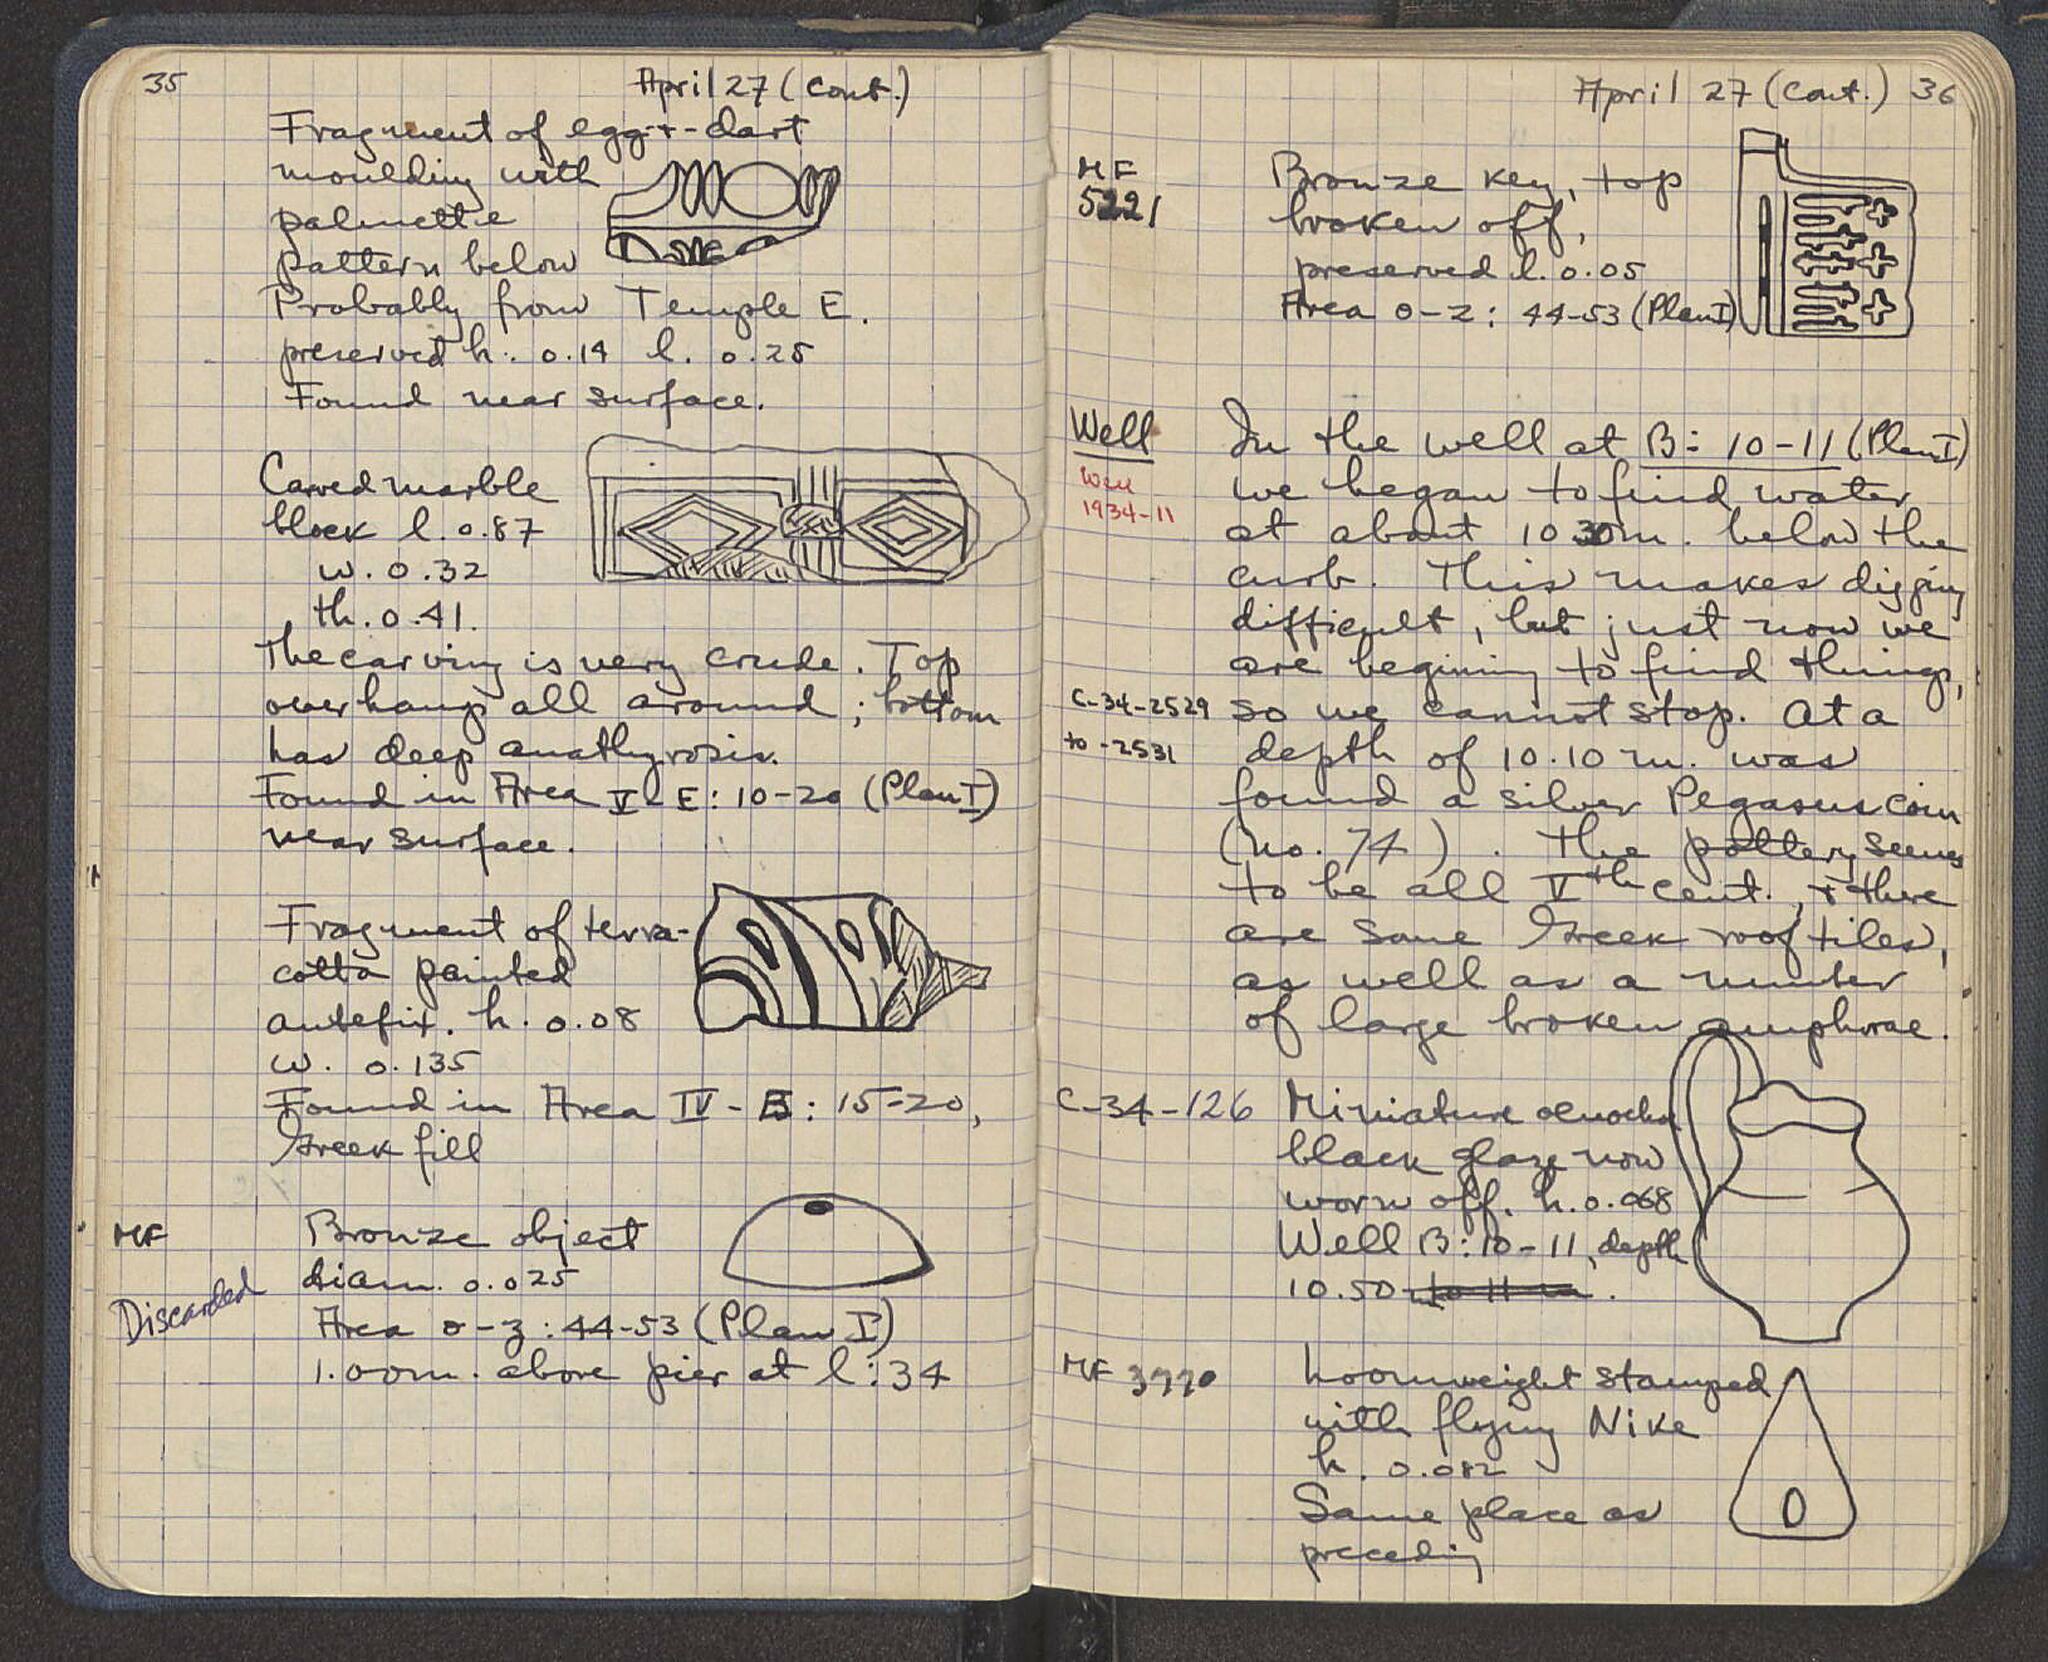 35
April 27 (cont.)
Fragment of egg-+-dart
moulding with
palmette
pattern below
Probably from Temple E.
preserved h. 0.14 l. 0.25
Found near surface.
Carved marble
block l. 0.87
w. 0.32
th. 0.41.
The carving is very crude. Top
overhangs all around; bottom
has deep anathyrosis.
Found in Area V-E: 10-20 (Plan I)
near surface.
Fragment of terra-
cotta painted
antefix. h. 0.08
w. 0.135
Found in Area IV-B: 15-20,
Greek fill
MF
Bronze object
diam. 0.025
Discarded
Area o-z: 44-53 (Plan I)
1.00m. above pier at l:34
April 27 (cont.) 36
MF
5221
Bronze key, top
broken off,
preserved l. 0.05
Area o-z: 44-53 (Plan I)
Well
Well
1934-11
In the well at B: 10-11 (Plan I)
we began to find water
at about 10 30m. below the
curb. This makes digging
difficult, but just now we
are begining to find things,
C-34-2529
to -2531
so we cannot stop. At a
depth of 10.10 m. was
found a silver Pegasus coin
(no. 74). The pottery seems
to be all Vth cent., + there
are some Greek roof tiles,
as well as a number
of large broken amphorae.
C-34-126
Miniature oenochoe
black glaze now
worn off. h. 0.068
Well B: 10-11, depth
10.50 to 11 m.
MF 3770
Loomweight stamped
with flying Nike
h. 0.082
Same place as
preceding